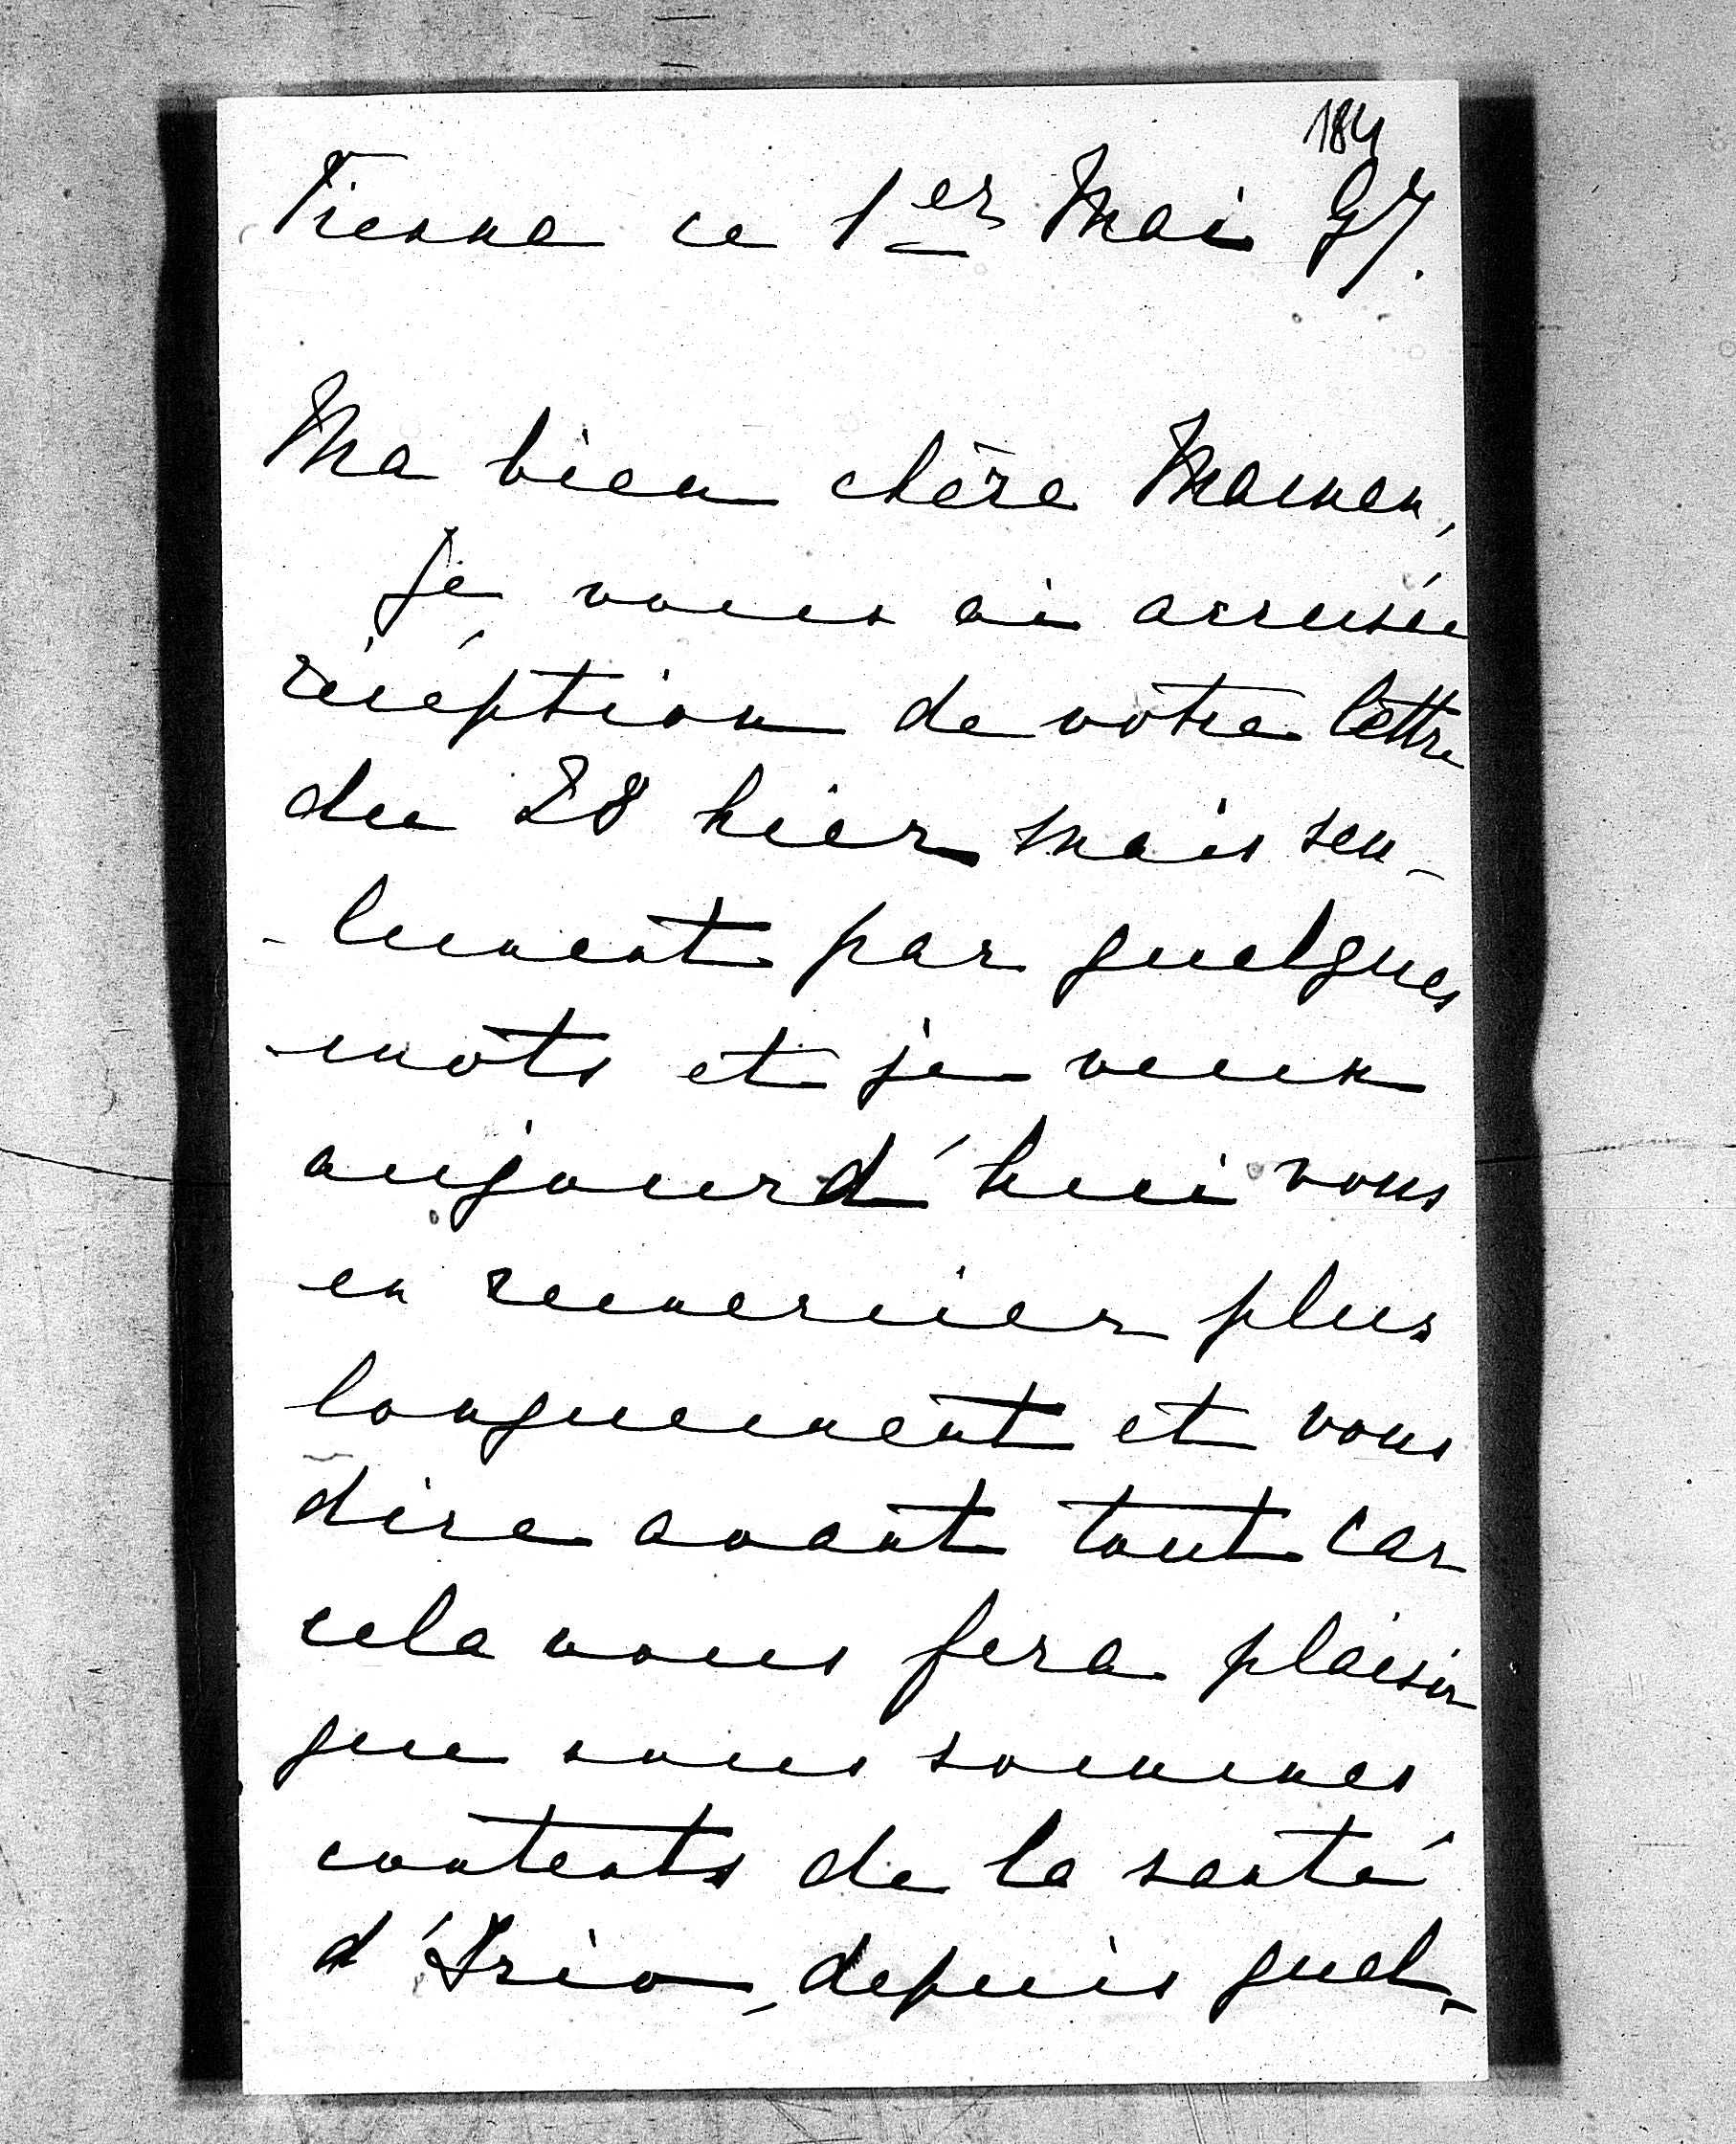 184
Vienne ce 1er Mai 97.
Ma bien chère Maman,
Je vous ai accusée
réception de votre lettre
du 28 hier mais seu-
-lement par quelques
mots et je veux
aujourd'hui vous
en remercier plus
longuement et vous
dire avant tout car
cela vous fera plaisir
que nous sommes
contents de la santé
depuis quel-